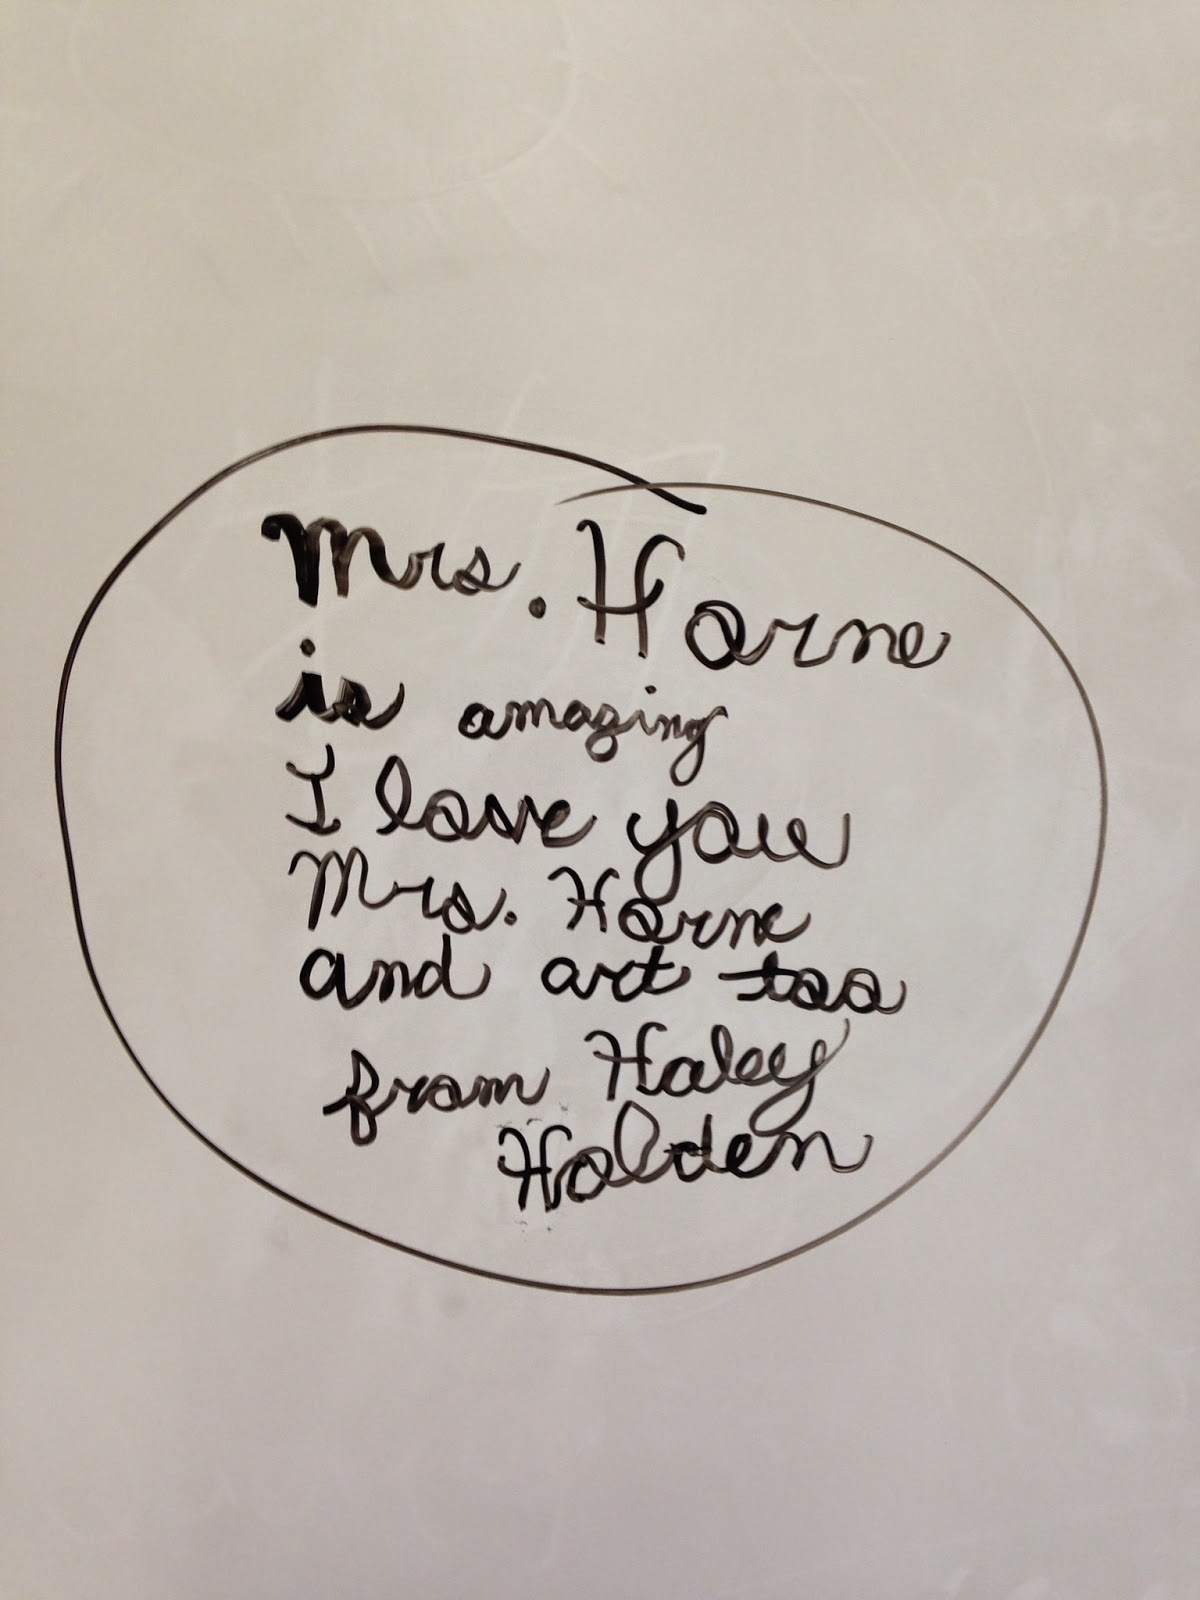 Mrs. Horne
is amazing
I love you
Mrs. Horne
and art too
from Haley
Holden